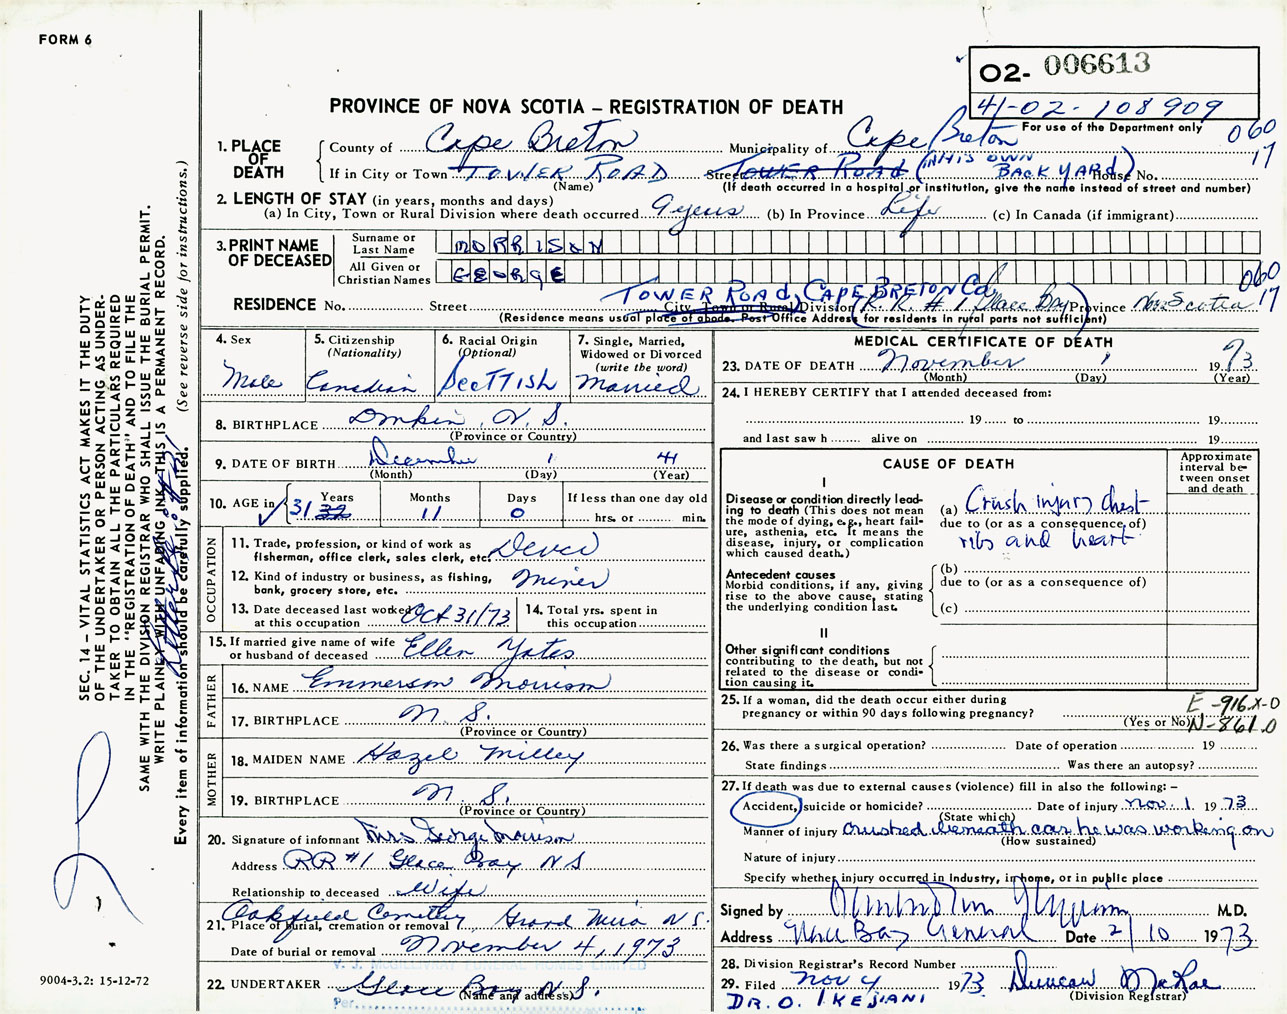 FORM 6
O2- 006613
41-02-108909
For use of the Department only
060
17
PROVINCE OF NOVA SCOTIA – REGISTRATION OF DEATH
1. PLACE OF DEATH
County of Cape Breton Municipality of Cape Breton
If in City or Town TOWER ROAD Street TOWER ROAD (IN HIS OWN BACK YARD) House No.
(Name) (If death occurred in a hospital or institution, give the name instead of street and number)
2. LENGTH OF STAY (in years, months and days)
(a) In City, Town or Rural Division where death occurred 9 years (b) In Province Life (c) In Canada (if immigrant)
3. PRINT NAME OF DECEASED
Surname or Last Name MORRISON
All Given or Christian Names GEORGE
060
17
TOWER ROAD, CAPE BRETON Co
RESIDENCE No. Street City, Town or Rural Division (R.R. #1 Glace Bay) Province Nova Scotia
(Residence means usual place of abode. Post Office Address for residents in rural parts not sufficient)
4. Sex
Male
5. Citizenship
(Nationality)
Canadian
6. Racial Origin
(Optional)
SCOTTISH
7. Single, Married,
Widowed or Divorced
(write the word)
Married
8. BIRTHPLACE Donkin, N.S.
(Province or Country)
9. DATE OF BIRTH December 1 41
(Month) (Day) (Year)
10. AGE in Years Months Days If less than one day old
31 32 11 0 hrs. or min.
OCCUPATION
11. Trade, profession, or kind of work as
fisherman, office clerk, sales clerk, etc.
12. Kind of industry or business, as fishing, miner
bank, grocery store, etc.
13. Date deceased last worked
at this occupation Oct 31/73
14. Total yrs. spent in
this occupation
15. If married give name of wife
or husband of deceased Ellen Yates
FATHER
16. NAME Emmerson Morrison
17. BIRTHPLACE N.S.
(Province or Country)
MOTHER
18. MAIDEN NAME Hazel Milley
19. BIRTHPLACE N.S.
(Province or Country)
20. Signature of informant Mrs George Morrison
Address RR #1 Glace Bay N S
Relationship to deceased Wife
Oakfield Cemetery, Grand Mira N.S.
21. Place of burial, cremation or removal
Date of burial or removal November 4, 1973
V. J. McGILLIVRAY FUNERAL HOMES LIMITED
22. UNDERTAKER Glace Bay N.S.
(Name and address)
Per
MEDICAL CERTIFICATE OF DEATH
23. DATE OF DEATH November 1 1973
(Month) (Day) (Year)
24. I HEREBY CERTIFY that I attended deceased from:
19 to 19
and last saw h alive on 19
CAUSE OF DEATH
Approximate interval between onset and death
I
Disease or condition directly leading to death (This does not mean the mode of dying, e.g., heart failure, asthenia, etc. It means the disease, injury, or complication which caused death.)
(a) Crush injury chest
due to (or as a consequence of)
ribs and heart
Antecedent causes
Morbid conditions, if any, giving rise to the above cause, stating the underlying condition last.
(b)
due to (or as a consequence of)
(c)
II
Other significant conditions
contributing to the death, but not related to the disease or condition causing it.
25. If a woman, did the death occur either during
pregnancy or within 90 days following pregnancy?
(Yes or No)
E-916.X-0
N-861.0
26. Was there a surgical operation? Date of operation 19
State findings Was there an autopsy?
27. If death was due to external causes (violence) fill in also the following: –
Accident, suicide or homicide? Date of injury Nov. 1 1973
(State which)
Manner of injury crushed beneath car he was working on
(How sustained)
Nature of injury
Specify whether injury occurred in industry, in home, or in public place
Signed by M.D.
Address Glace Bay General Date 2/10 1973
28. Division Registrar's Record Number
29. Filed Nov 4 1973 Duncan McRae
(Division Registrar)
DR. O. IKEJIANI
SEC. 14 – VITAL STATISTICS ACT MAKES IT THE DUTY
OF THE UNDERTAKER OR PERSON ACTING AS UNDER-
TAKER TO OBTAIN ALL THE PARTICULARS REQUIRED
IN THE "REGISTRATION OF DEATH" AND TO FILE THE
SAME WITH THE DIVISION REGISTRAR WHO SHALL ISSUE THE BURIAL PERMIT.
WRITE PLAINLY WITH UNFADING INK. THIS IS A PERMANENT RECORD.
Every item of information should be carefully supplied. (See reverse side for instructions.)
9004-3.2: 15-12-72